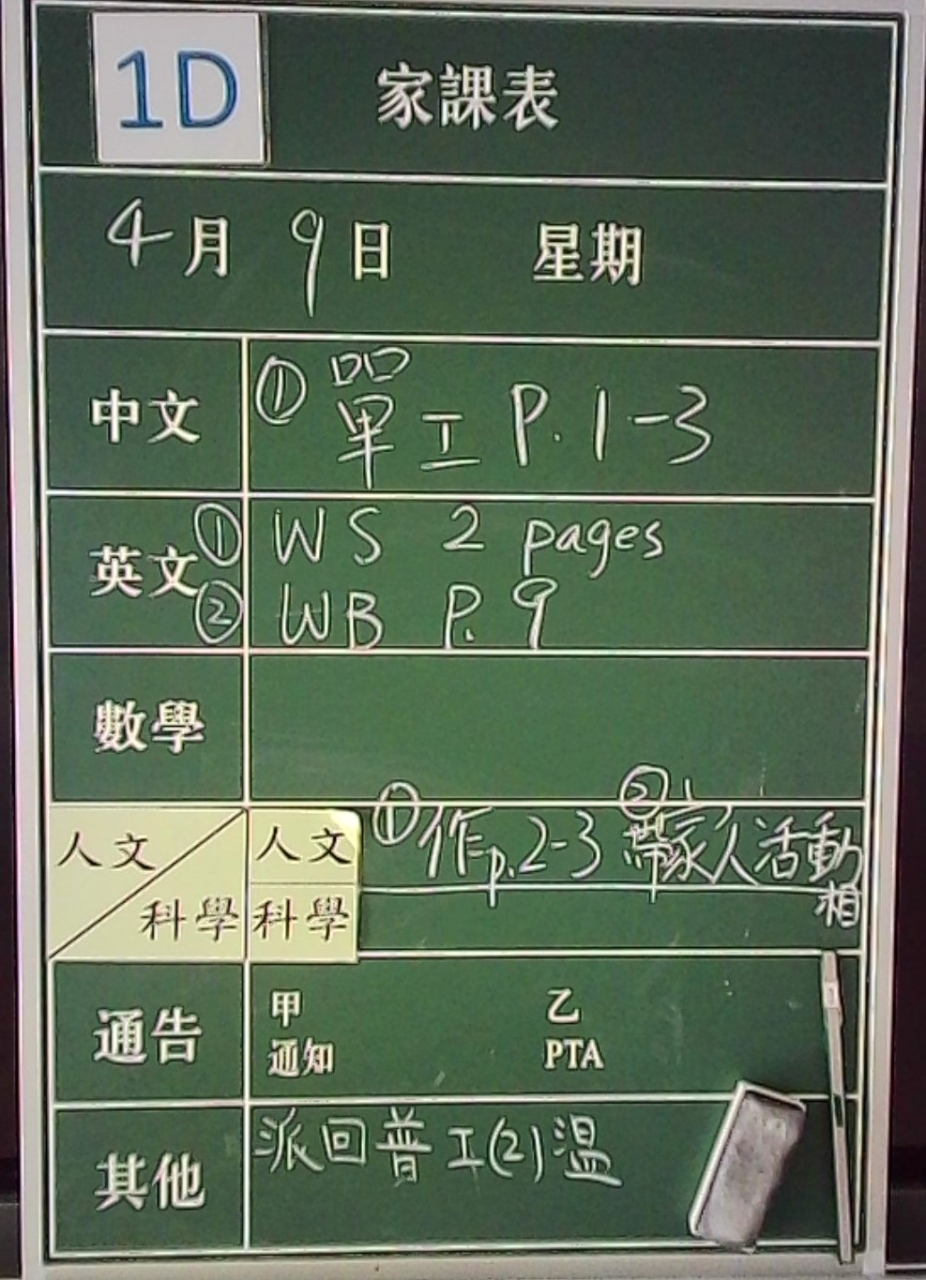 1D 家課表
4月9日 星期
中文 ① 單工 P.1-3
英文 ① WS 2 pages
② WB P.9
數學
人文 人文 ①作p.2-3 ②帶家人活動
相
科學 科學
通告 甲 乙
通知 PTA
其他 派回普工(2)溫